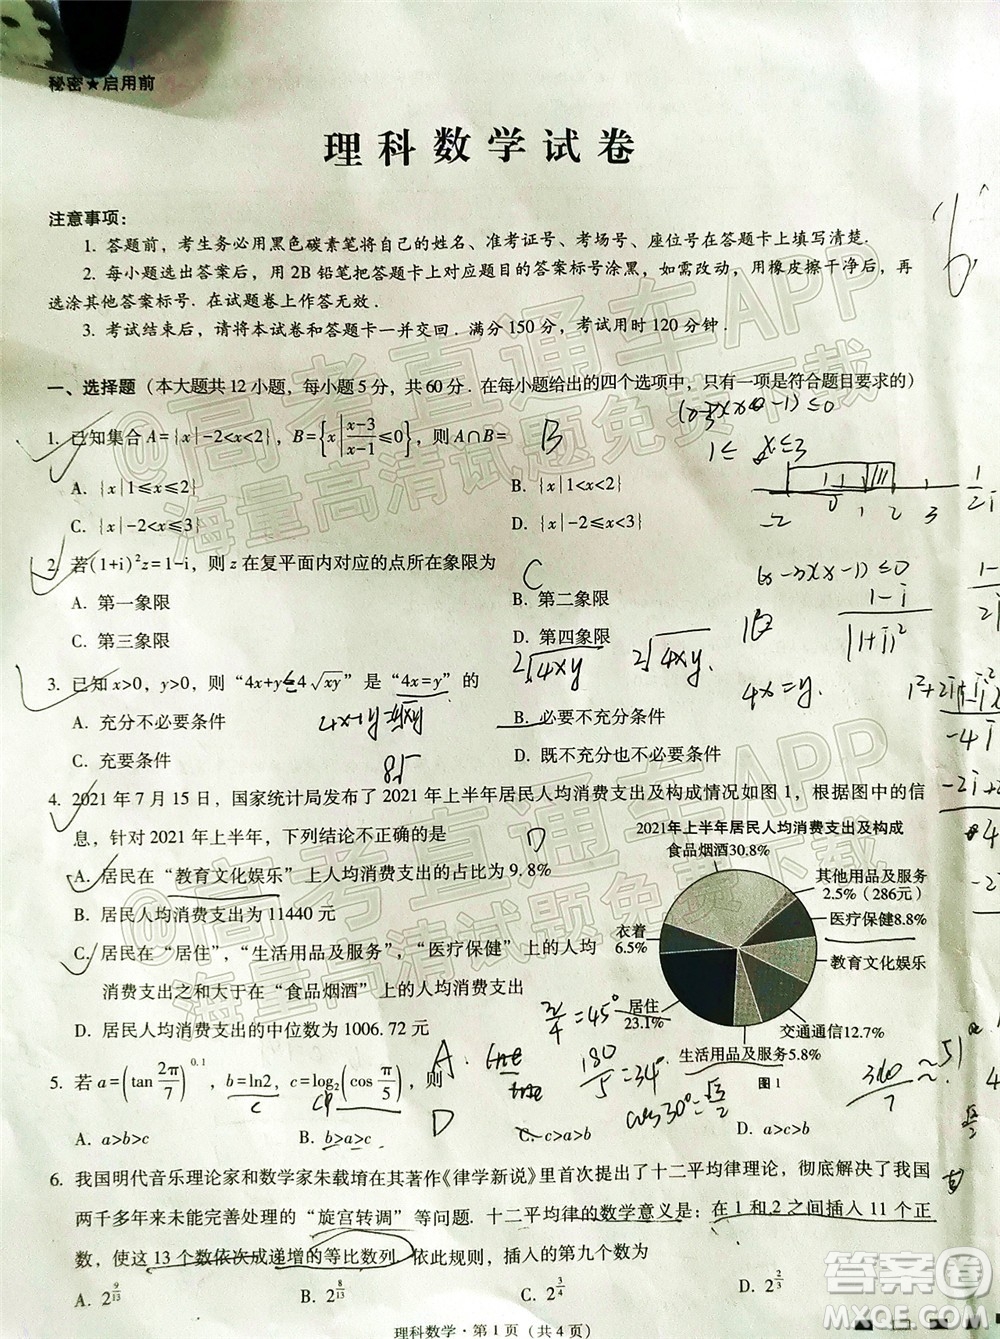 秘密★启用前
理科数学试卷
注意事项：
1. 答题前，考生务必用黑色碳素笔将自己的姓名、准考证号、考场号、座位号在答题卡上填写清楚.
2. 每小题选出答案后，用 2B 铅笔把答题卡上对应题目的答案标号涂黑，如需改动，用橡皮擦干净后，再
选涂其他答案标号. 在试题卷上作答无效.
3. 考试结束后，请将本试卷和答题卡一并交回. 满分 150 分，考试用时 120 分钟.
一、选择题（本大题共 12 小题，每小题 5 分，共 60 分. 在每小题给出的四个选项中，只有一项是符合题目要求的）
1. 已知集合 A={x|-2<x<2}，B={x|(x-3)/(x-1)≤0}，则 A∩B= B
1≤x≤3
A. {x|1≤x≤2} B. {x|1<x<2}
C. {x|-2<x≤3} D. {x|-2≤x<3}
-2 0 1 2 3
2. 若(1+i)²z=1-i，则 z 在复平面内对应的点所在象限为 C
A. 第一象限 B. 第二象限
C. 第三象限 D. 第四象限
2√4xy 2√4xy.
3. 已知 x>0，y>0，则“4x+y≤4√xy”是“4x=y”的
4x=y.
A. 充分不必要条件 B. 必要不充分条件
C. 充要条件 D. 既不充分也不必要条件
4. 2021 年 7 月 15 日，国家统计局发布了 2021 年上半年居民人均消费支出及构成情况如图 1，根据图中的信
息，针对 2021 年上半年，下列结论不正确的是 D
A. 居民在“教育文化娱乐”上人均消费支出的占比为 9.8%
B. 居民人均消费支出为 11440 元
C. 居民在“居住”，“生活用品及服务”，“医疗保健”上的人均
消费支出之和大于在“食品烟酒”上的人均消费支出
D. 居民人均消费支出的中位数为 1006.72 元
2021年上半年居民人均消费支出及构成
食品烟酒30.8%
其他用品及服务
2.5%（286元）
医疗保健8.8%
教育文化娱乐
交通通信12.7%
生活用品及服务5.8%
居住
23.1%
衣着
6.5%
图 1
5. 若 a=(tan 2π/7)^0.1，b=ln2，c=log₂(cos π/5)，则 D
A. a>b>c B. b>a>c C. c>a>b D. a>c>b
π/4=45° 180/5=34° cos30°=√3/2
6. 我国明代音乐理论家和数学家朱载堉在其著作《律学新说》里首次提出了十二平均律理论，彻底解决了我国
两千多年来未能完善处理的“旋宫转调”等问题. 十二平均律的数学意义是：在 1 和 2 之间插入 11 个正
数，使这 13 个数依次成递增的等比数列. 依此规则，插入的第九个数为
A. 2^(9/13) B. 2^(8/13) C. 2^(3/4) D. 2^(2/3)
理科数学·第 1 页（共 4 页）
@高考直通车APP
海量高清试题免费下载
@高考直通车APP
海量高清试题免费下载
答案圈
MXQE.COM